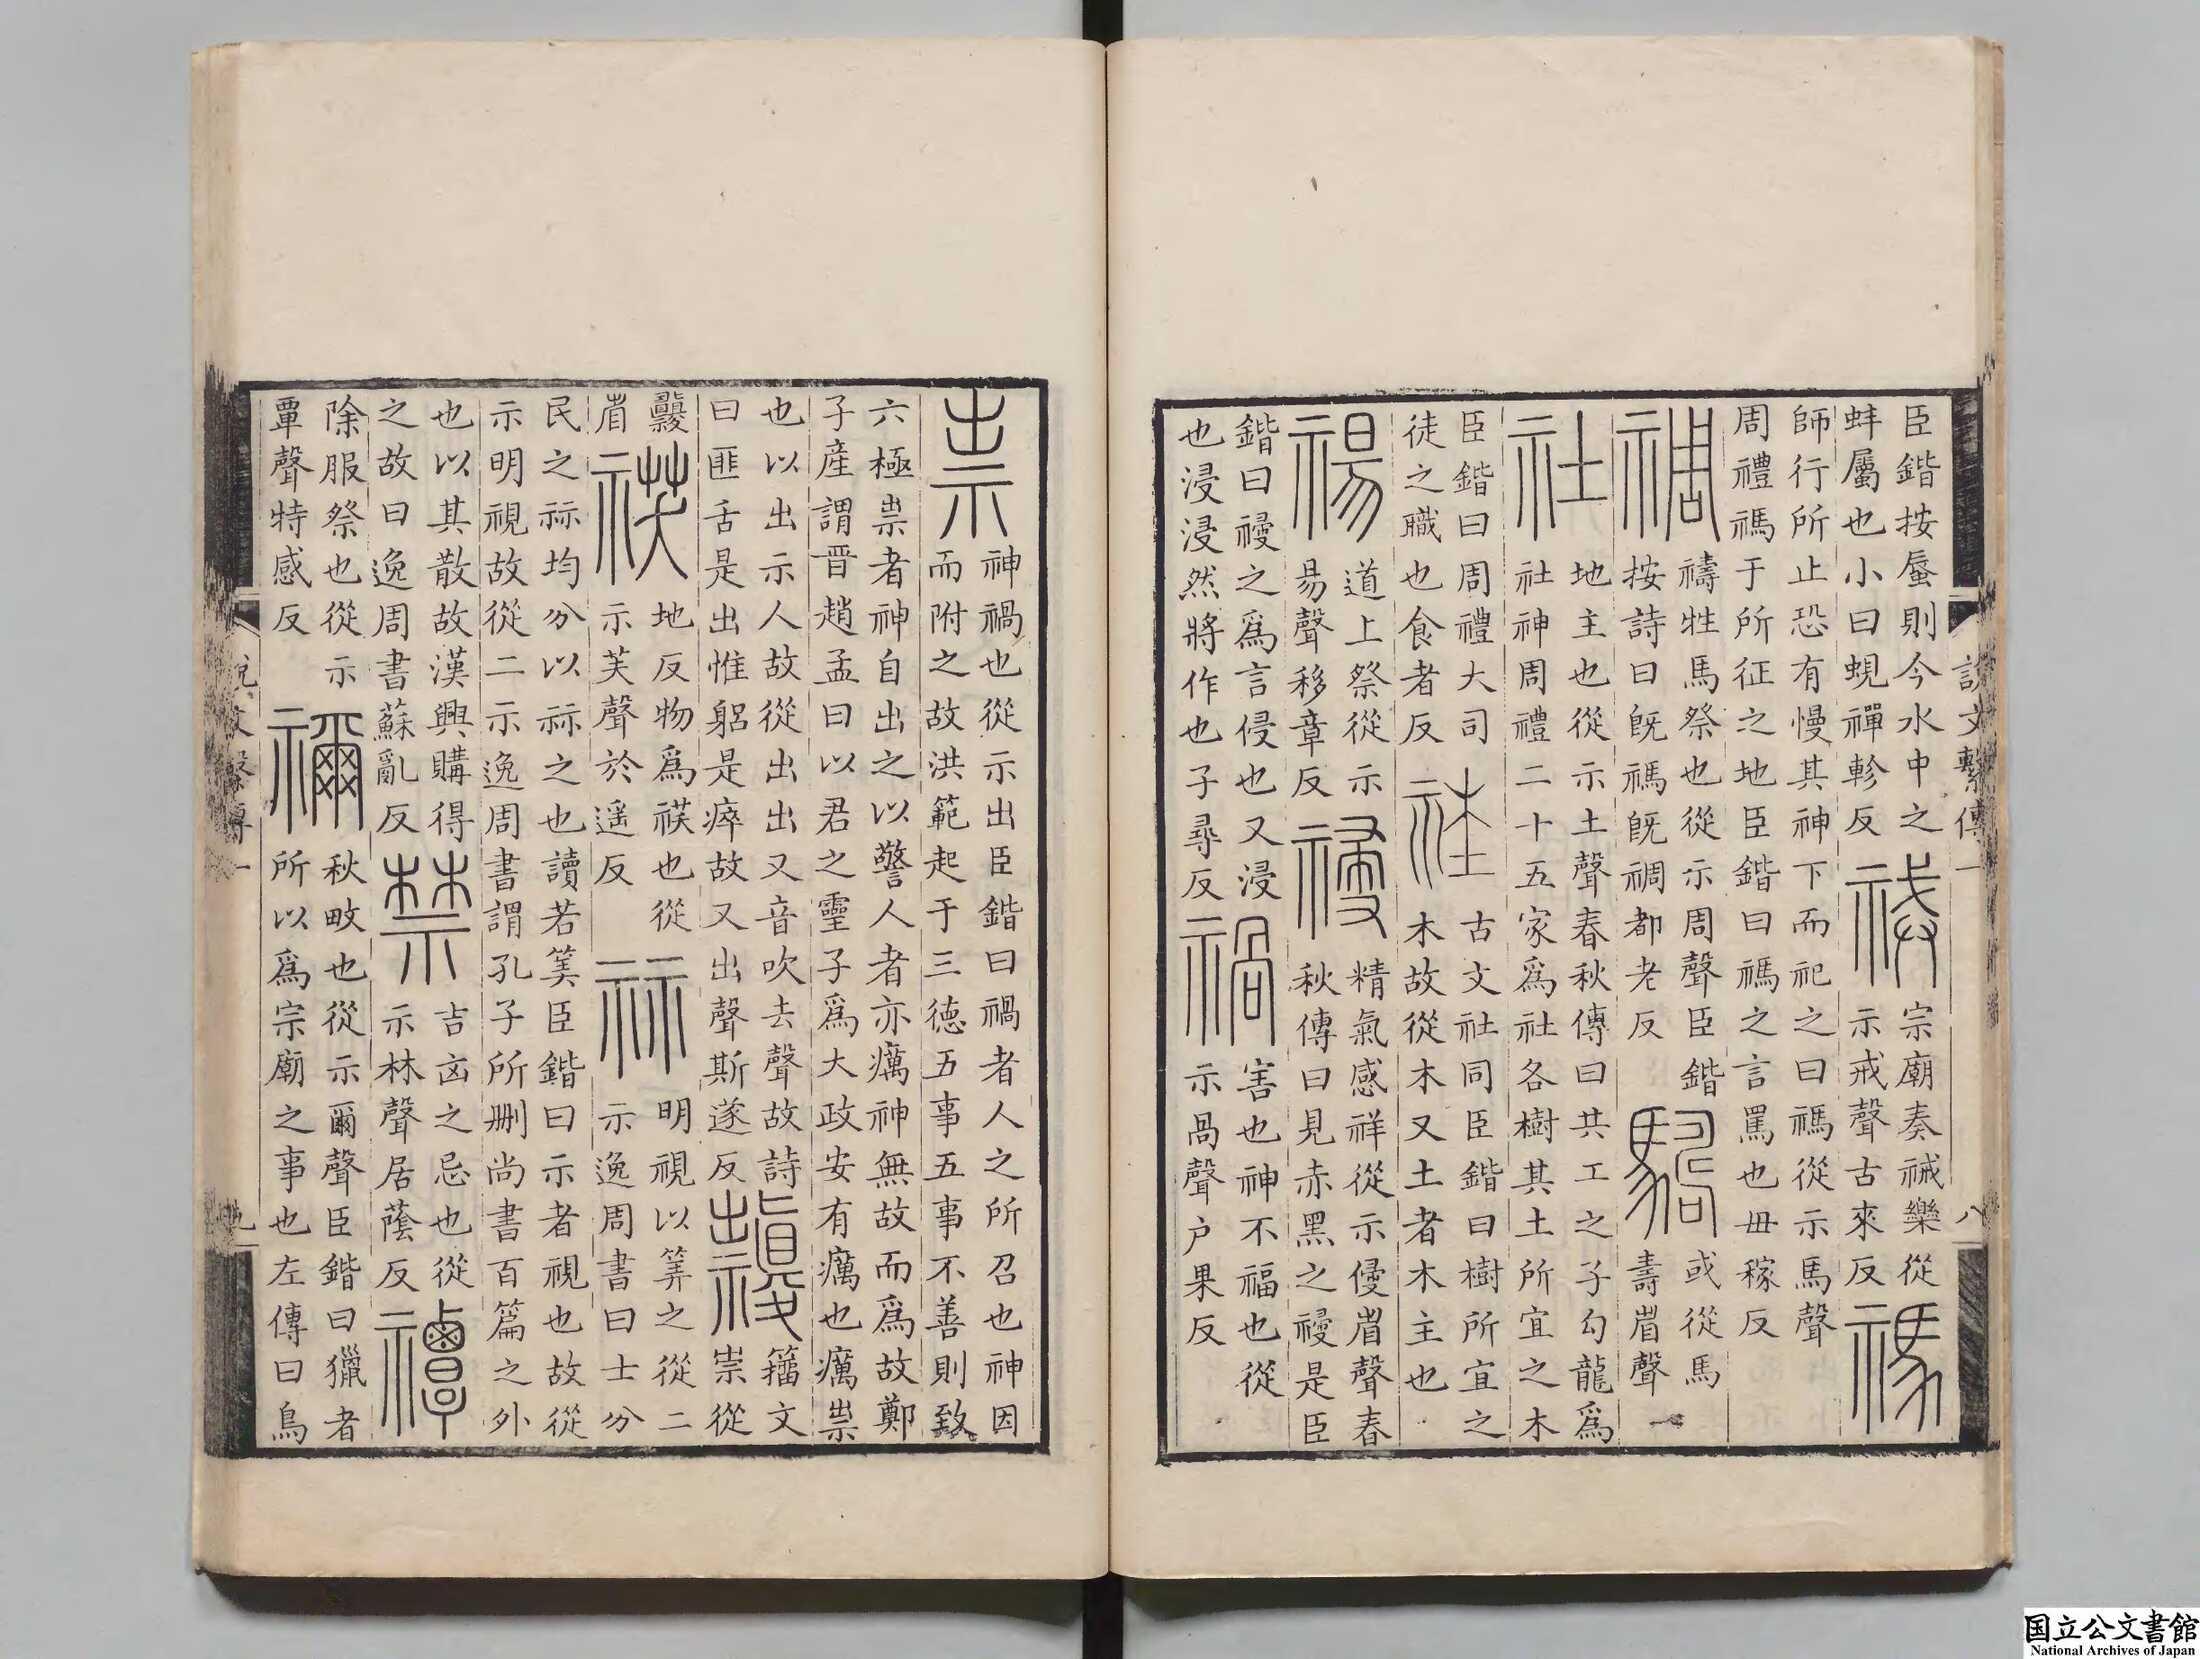 說文繫傳一
八
臣鍇按蜃則今水中之
蚌屬也小曰蜆禪軫反
祴
宗廟奏祴樂從
示戒聲古來反
禡
師行所止恐有慢其神下而祀之曰禡從示馬聲
周禮禡于所征之地臣鍇曰禡之言罵也毋稼反
禂
禱牲馬祭也從示周聲臣鍇
按詩曰旣禡旣禂都老反
或從馬
壽省聲
社
地主也從示土聲春秋傳曰共工之子勾龍爲
社神周禮二十五家爲社各樹其土所宜之木
臣鍇曰周禮大司
徒之職也食者反
古文社同臣鍇曰樹所宜之
木故從木又土者木主也
禓
道上祭從示
易聲移章反
祲
精氣感祥從示侵省聲春
秋傳曰見赤黑之祲是臣
鍇曰祲之爲言侵也又浸
也浸浸然將作也子尋反
禍
害也神不福也從
示咼聲户果反
祟
神禍也從示出臣鍇曰禍者人之所召也神因
而附之故洪範起于三德五事五事不善則致
六極祟者神自出之以警人者亦癘神無故而爲故鄭
子産謂晋趙孟曰以君之靈子爲大政安有癘也癘祟
也以出示人故從出出又音吹去聲故詩
曰匪舌是出惟躬是瘁故又出聲斯遂反
籒文
祟從
省
祅
地反物爲祅也從
示芺聲於遥反
祘
明視以筭之從二
示逸周書曰士分
民之祘均分以祘之也讀若筭臣鍇曰示者視也故從
示明視故從二示逸周書謂孔子所删尚書百篇之外
也以其散故漢興購得
之故曰逸周書蘇亂反
禁
吉凶之忌也從
示林聲居蔭反
禫
除服祭也從示
覃聲特感反
禰
秋畋也從示爾聲臣鍇曰獵者
所以爲宗廟之事也左傳曰鳥
說文繫傳一
九
国立公文書館
National Archives of Japan